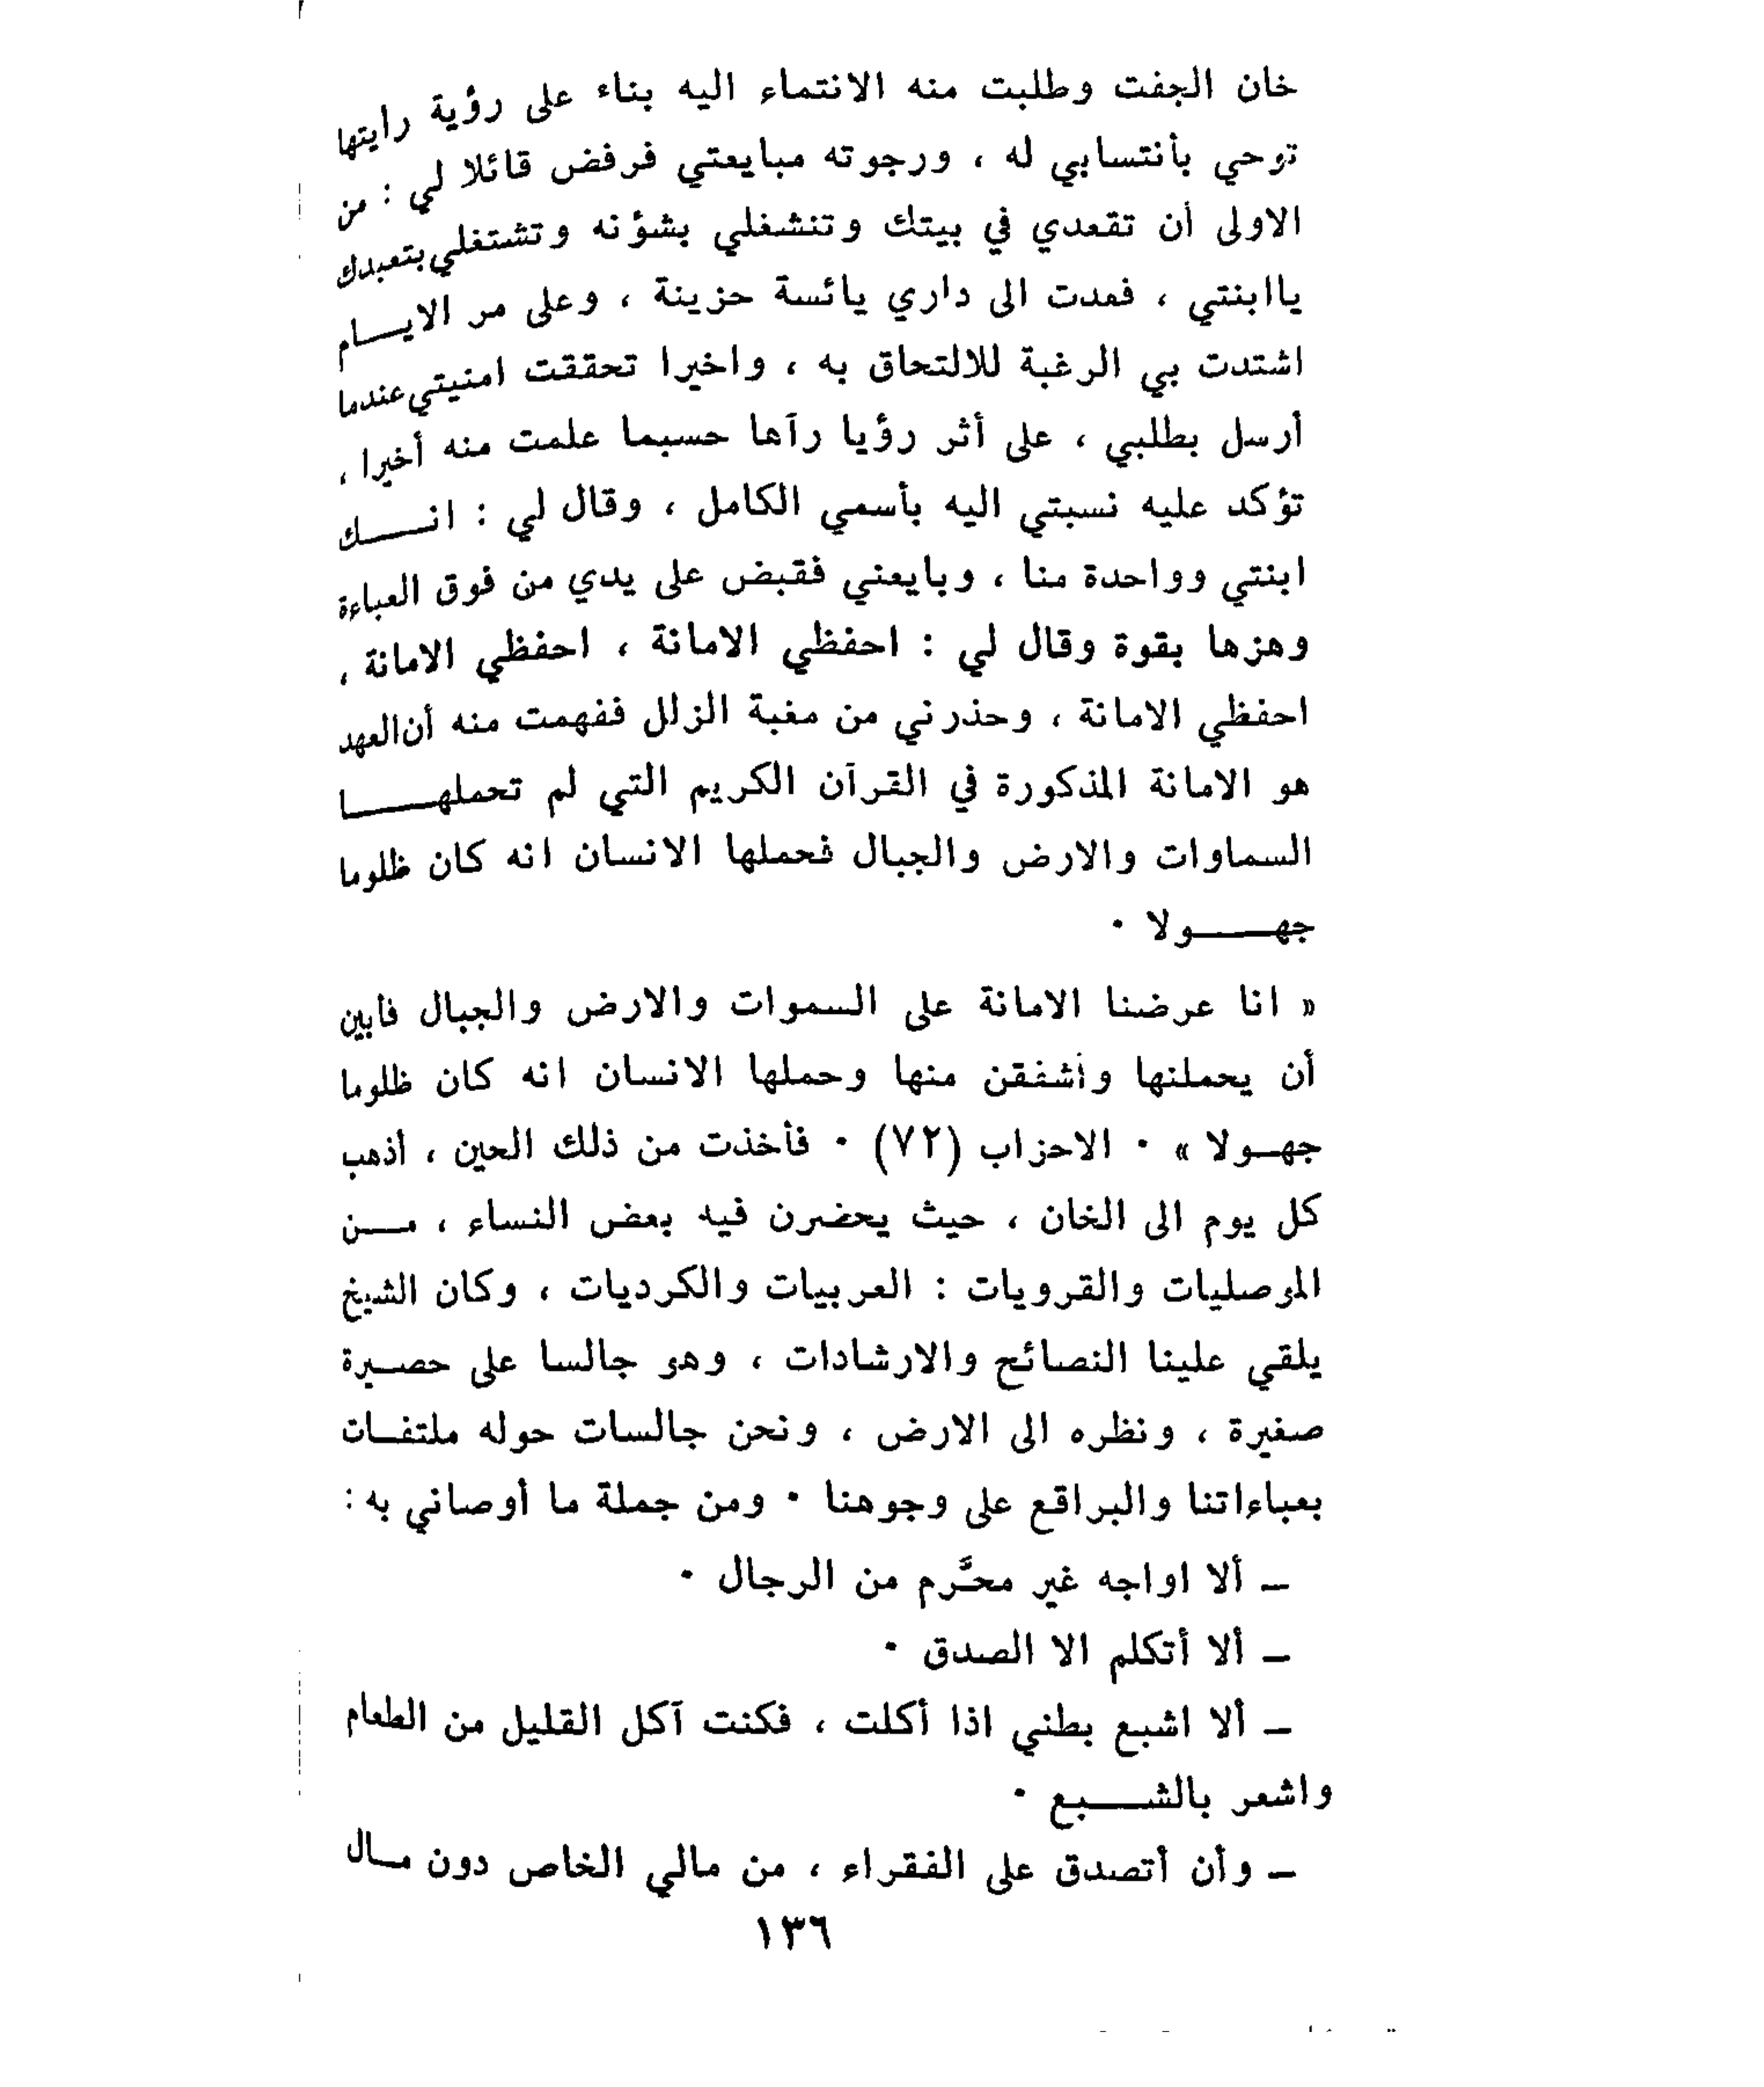 خان الجفت وطلبت منه الانتماء اليه بناء على رؤية رايتها
توحي بأنتسابي له ، ورجوته مبايعتي فرفض قائلا لي : من
الاولى أن تقعدي في بيتك وتنشغلي بشؤنه وتشتغلي بتعبدك
ياابنتي ، فعدت الى داري يائسة حزينة ، وعلى مر الايــام
اشتدت بي الرغبة للالتحاق به ، واخيرا تحققت امنيتي عندما
أرسل بطلبي ، على أثر رؤيا رآها حسبما علمت منه أخيرا ،
تؤكد عليه نسبتي اليه بأسمي الكامل ، وقال لي : انــــك
ابنتي وواحدة منا ، وبايعني فقبض على يدي من فوق العباءة
وهزها بقوة وقال لي : احفظي الامانة ، احفظي الامانة ،
احفظي الامانة ، وحذرني من مغبة الزلل ففهمت منه أن العهد
هو الامانة المذكورة في القرآن الكريم التي لم تحملهــــا
السماوات والارض والجبال فحملها الانسان انه كان ظلوما
جهــــولا ٠
« انا عرضنا الامانة على السموات والارض والجبال فابين
أن يحملنها وأشفقن منها وحملها الانسان انه كان ظلوما
جهــولا » ٠ الاحزاب (٧٢) ٠ فأخذت من ذلك الحين ، أذهب
كل يوم الى الخان ، حيث يحضرن فيه بعض النساء ، مــن
الموصليات والقرويات : العربيات والكرديات ، وكان الشيخ
يلقي علينا النصائح والارشادات ، وهو جالسا على حصــيرة
صغيرة ، ونظره الى الارض ، ونحن جالسات حوله ملتفــات
بعباءاتنا والبراقع على وجوهنا ٠ ومن جملة ما أوصاني به :
ــ ألا اواجه غير محَّرم من الرجال ٠
ــ ألا أتكلم الا الصدق ٠
ــ ألا اشبع بطني اذا أكلت ، فكنت آكل القليل من الطعام
واشعر بالشـــبع ٠
ــ وأن أتصدق على الفقراء ، من مالي الخاص دون مــال
١٣٦